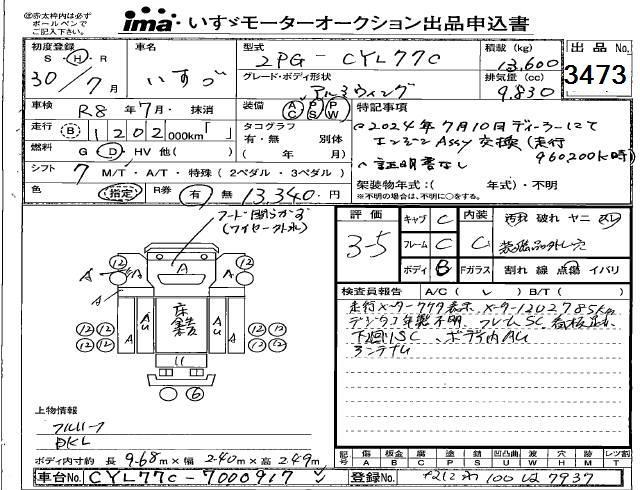 ㊟赤太枠内は必ず
ボールペンで
ご記入下さい。
ima いすゞモーターオークション出品申込書
初度登録 車名 型式 積載 (kg) 出品 No.
S・H・R いすゞ 2PG-CYL77C 13,600 3473
30/7月 グレード・ボディ形状 排気量 (cc)
アルミウィング 9,830
車検 R8年7月・抹消 装備 AC PS PW 特記事項
走行 B 1202 000km「 」 タコグラフ 2024年7月10日ディーラーにて
有・無 別体 エンジンAssy交換(走行
燃料 G D・HV 他( ) ( 年 月) 960200K時)
証明書なし
シフト 7 M/T・A/T・特殊(2ペダル・3ペダル) 架装物年式:( 年式)・不明
※不明の場合は、不明に○をする。
色 指定 R券 有 無 13,340円
評価 キャブ C 内装 汚れ 破れ ヤニ メレ
3-5 フレーム C C 装備品外し穴
ボディ B Fガラス 割れ 線 点傷 イバリ
検査員報告 A/C( レ ) B/T( )
走行メーター 表示 メーター1202785km
デジタコ年製不明、フレームSC
下回りSC、ボディ内AU
アンテナU
フード開らかず
(ワイヤー)
12 12 12 12
A A A A
A AU 床鉄 AU A
12 12 12 12
12 12 12 12
6
上物情報
フルハーフ
DKL
ボディ内寸約 長 9.68m×幅 2.40m×高 2.49m
記号 傷 A 板金 B 腐 C 塗 P 錆 S 凹凸曲 U 波 W 穴 H 跡 M レツ割 T
車台No. CYL77C-7000917 登録No. 100 は 7937